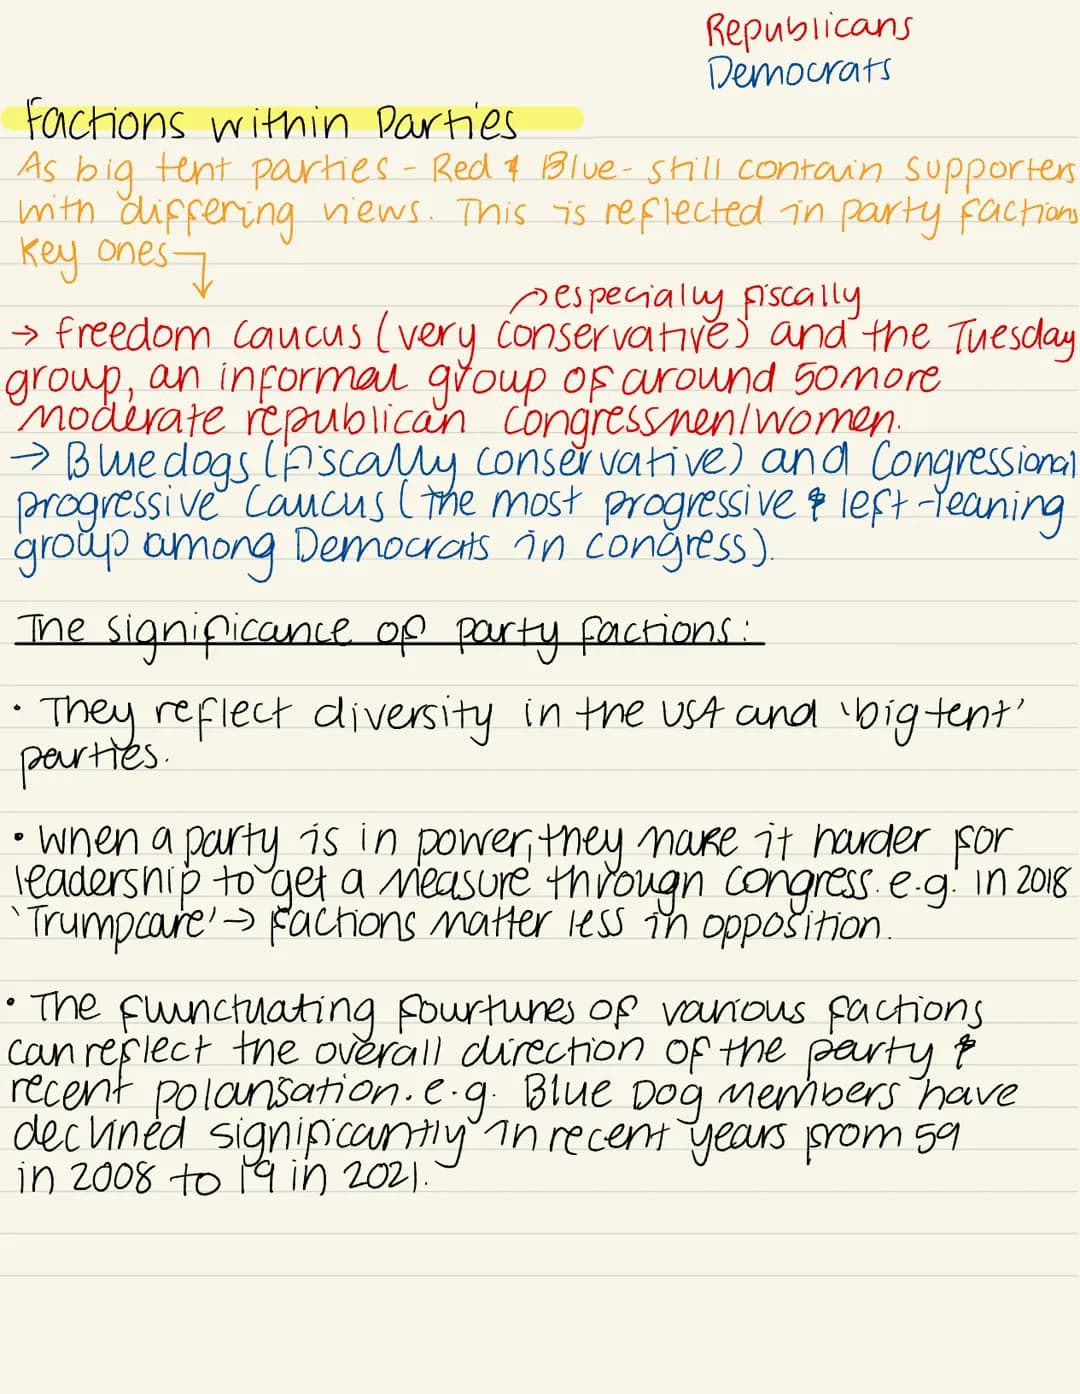 Republicans
Democrats
Factions within Parties
As big tent parties - Red & Blue - still contain supporters
with differing views. This is reflected in party factions
Key ones
especially fiscally
→ freedom caucus (very conservative) and the Tuesday
group, an informal group of around 50 more
moderate republican congressmen/women.
→ Blue dogs (fiscally conservative) and Congressional
progressive Caucus (the most progressive & left-leaning
group among Democrats in congress).
The significance of party factions:
• They reflect diversity in the USA and 'big tent'
parties.
• When a party is in power, they make it harder for
leadership to get a measure through congress. e.g. in 2018
'Trumpcare' → factions matter less in opposition.
• The flunctuating fourtunes of various factions
can reflect the overall direction of the party &
recent polarisation. e.g. Blue Dog members have
declined significantly in recent years from 59
in 2008 to 19 in 2021.